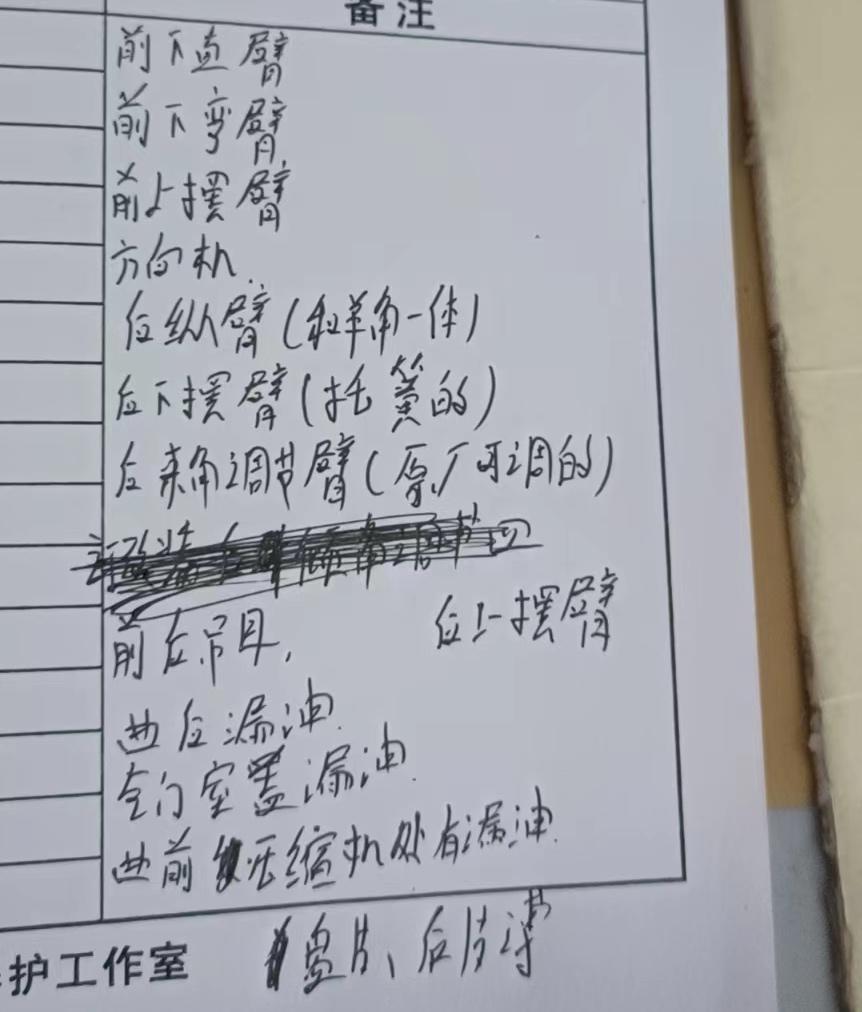 备注
前下直臂
前下弯臂
前上摆臂
方向机
后纵臂(和羊角一体)
后下摆臂(托簧的)
后束角调节臂(原厂可调的)
前后吊耳,
后上摆臂
曲后漏油
气门室盖漏油
曲前 压缩机处有漏油
护工作室
盘片、后片薄